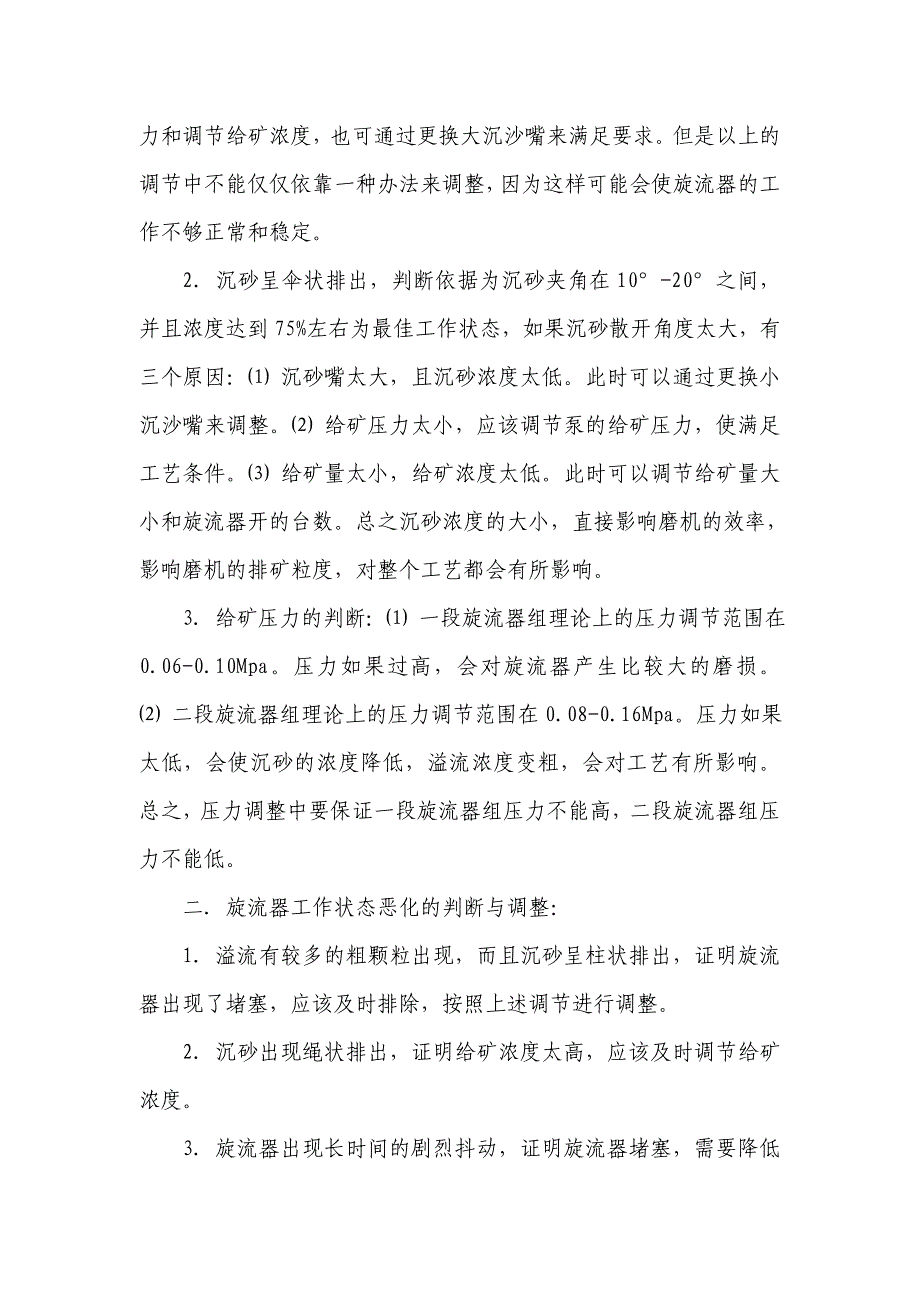 力和调节给矿浓度，也可通过更换大沉沙嘴来满足要求。但是以上的
调节中不能仅仅依靠一种办法来调整，因为这样可能会使旋流器的工
作不够正常和稳定。
2. 沉砂呈伞状排出，判断依据为沉砂夹角在10°-20°之间，
并且浓度达到75%左右为最佳工作状态，如果沉砂散开角度太大，有
三个原因：⑴ 沉砂嘴太大，且沉砂浓度太低。此时可以通过更换小
沉沙嘴来调整。⑵ 给矿压力太小，应该调节泵的给矿压力，使满足
工艺条件。⑶ 给矿量太小，给矿浓度太低。此时可以调节给矿量大
小和旋流器开的台数。总之沉砂浓度的大小，直接影响磨机的效率，
影响磨机的排矿粒度，对整个工艺都会有所影响。
3. 给矿压力的判断：⑴ 一段旋流器组理论上的压力调节范围在
0.06-0.10Mpa。压力如果过高，会对旋流器产生比较大的磨损。
⑵ 二段旋流器组理论上的压力调节范围在0.08-0.16Mpa。压力如果
太低，会使沉砂的浓度降低，溢流浓度变粗，会对工艺有所影响。
总之，压力调整中要保证一段旋流器组压力不能高，二段旋流器组压
力不能低。
二. 旋流器工作状态恶化的判断与调整：
1. 溢流有较多的粗颗粒出现，而且沉砂呈柱状排出，证明旋流
器出现了堵塞，应该及时排除，按照上述调节进行调整。
2. 沉砂出现绳状排出，证明给矿浓度太高，应该及时调节给矿
浓度。
3. 旋流器出现长时间的剧烈抖动，证明旋流器堵塞，需要降低